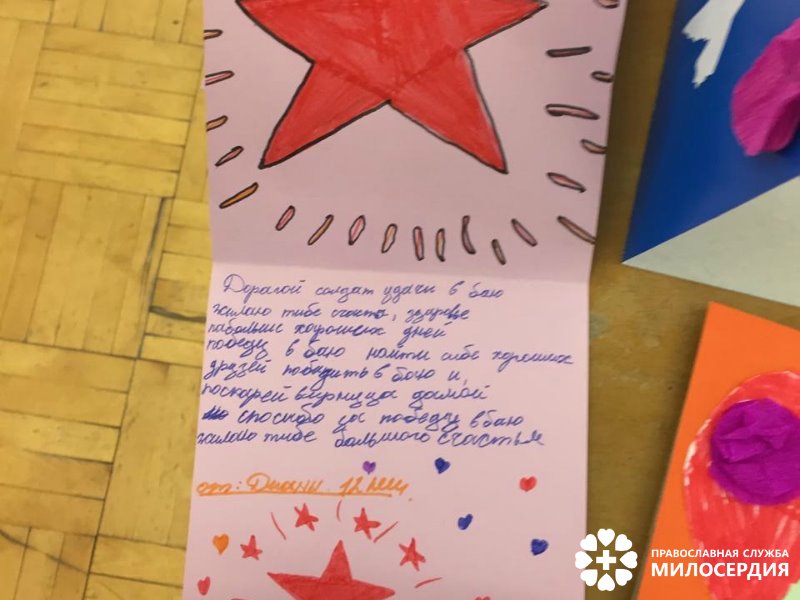 Дорагой солдат удачи в баю
жилаю тибе счастья, здоровье
пабольше харошых дней
победу в баю найти сибе хороших
друзей победить в баю и
поскарей вирнуцца дамой
спосибо за победу в баю
жилаю тибе большого счастья
от: Дианы 12 лет
ПРАВОСЛАВНАЯ СЛУЖБА
МИЛОСЕРДИЯ